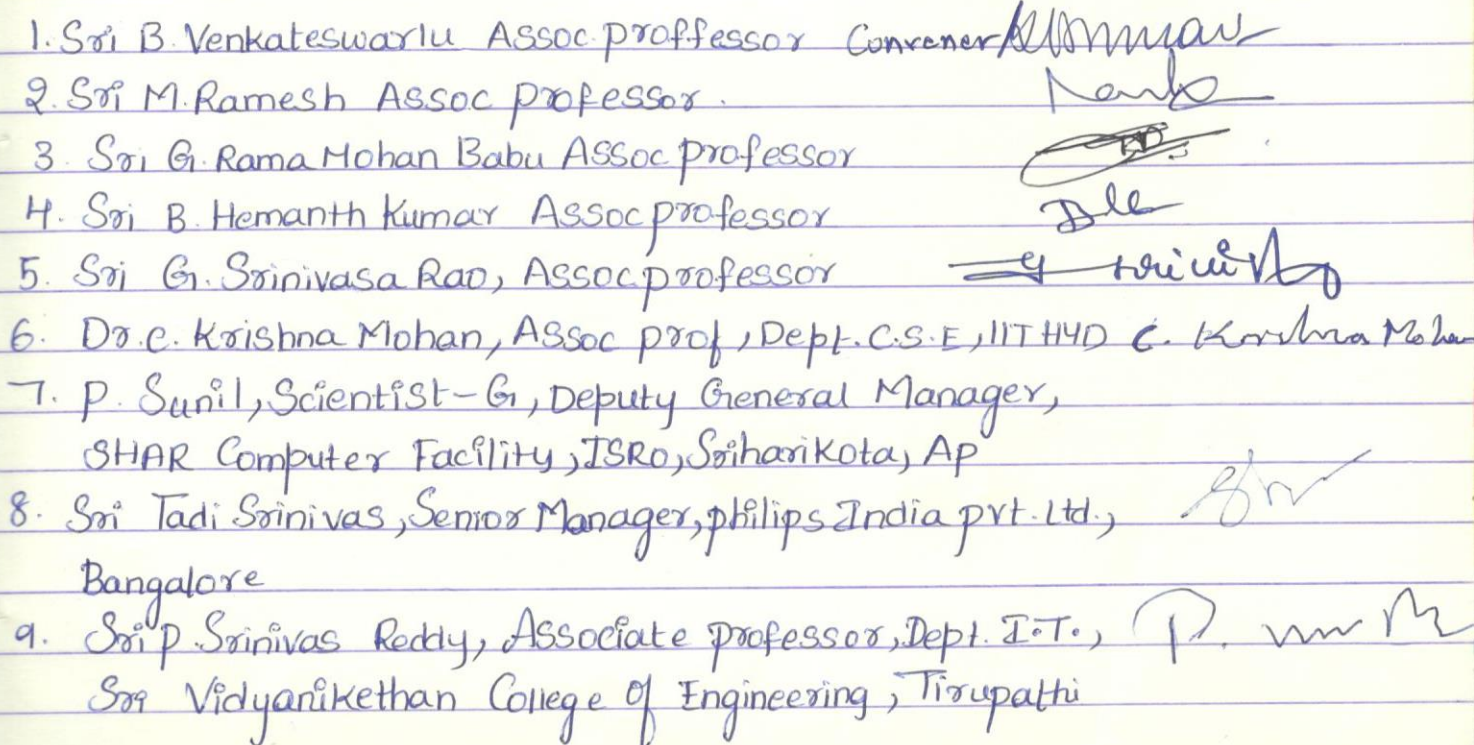 1. Sri B. Venkateswarlu Assoc. proffessor Convener
2. Sri M. Ramesh Assoc professor.
3. Sri G. Rama Mohan Babu Assoc professor
4. Sri B. Hemanth Kumar Assoc professor
5. Sri G. Srinivasa Rao, Assoc professor
6. Dr. C. Krishna Mohan, Assoc prof, Dept. C.S.E, IIT HYD C. Krishna Mohan
7. P. Sunil, Scientist-G, Deputy General Manager,
SHAR Computer Facility, ISRO, Sriharikota, Ap
8. Sri Tadi Srinivas, Senior Manager, philips India pvt. Ltd.,
Bangalore
9. Sri P. Srinivas Reddy, Associate professor, Dept. I.T.,
Sri Vidyanikethan College of Engineering, Tirupathi